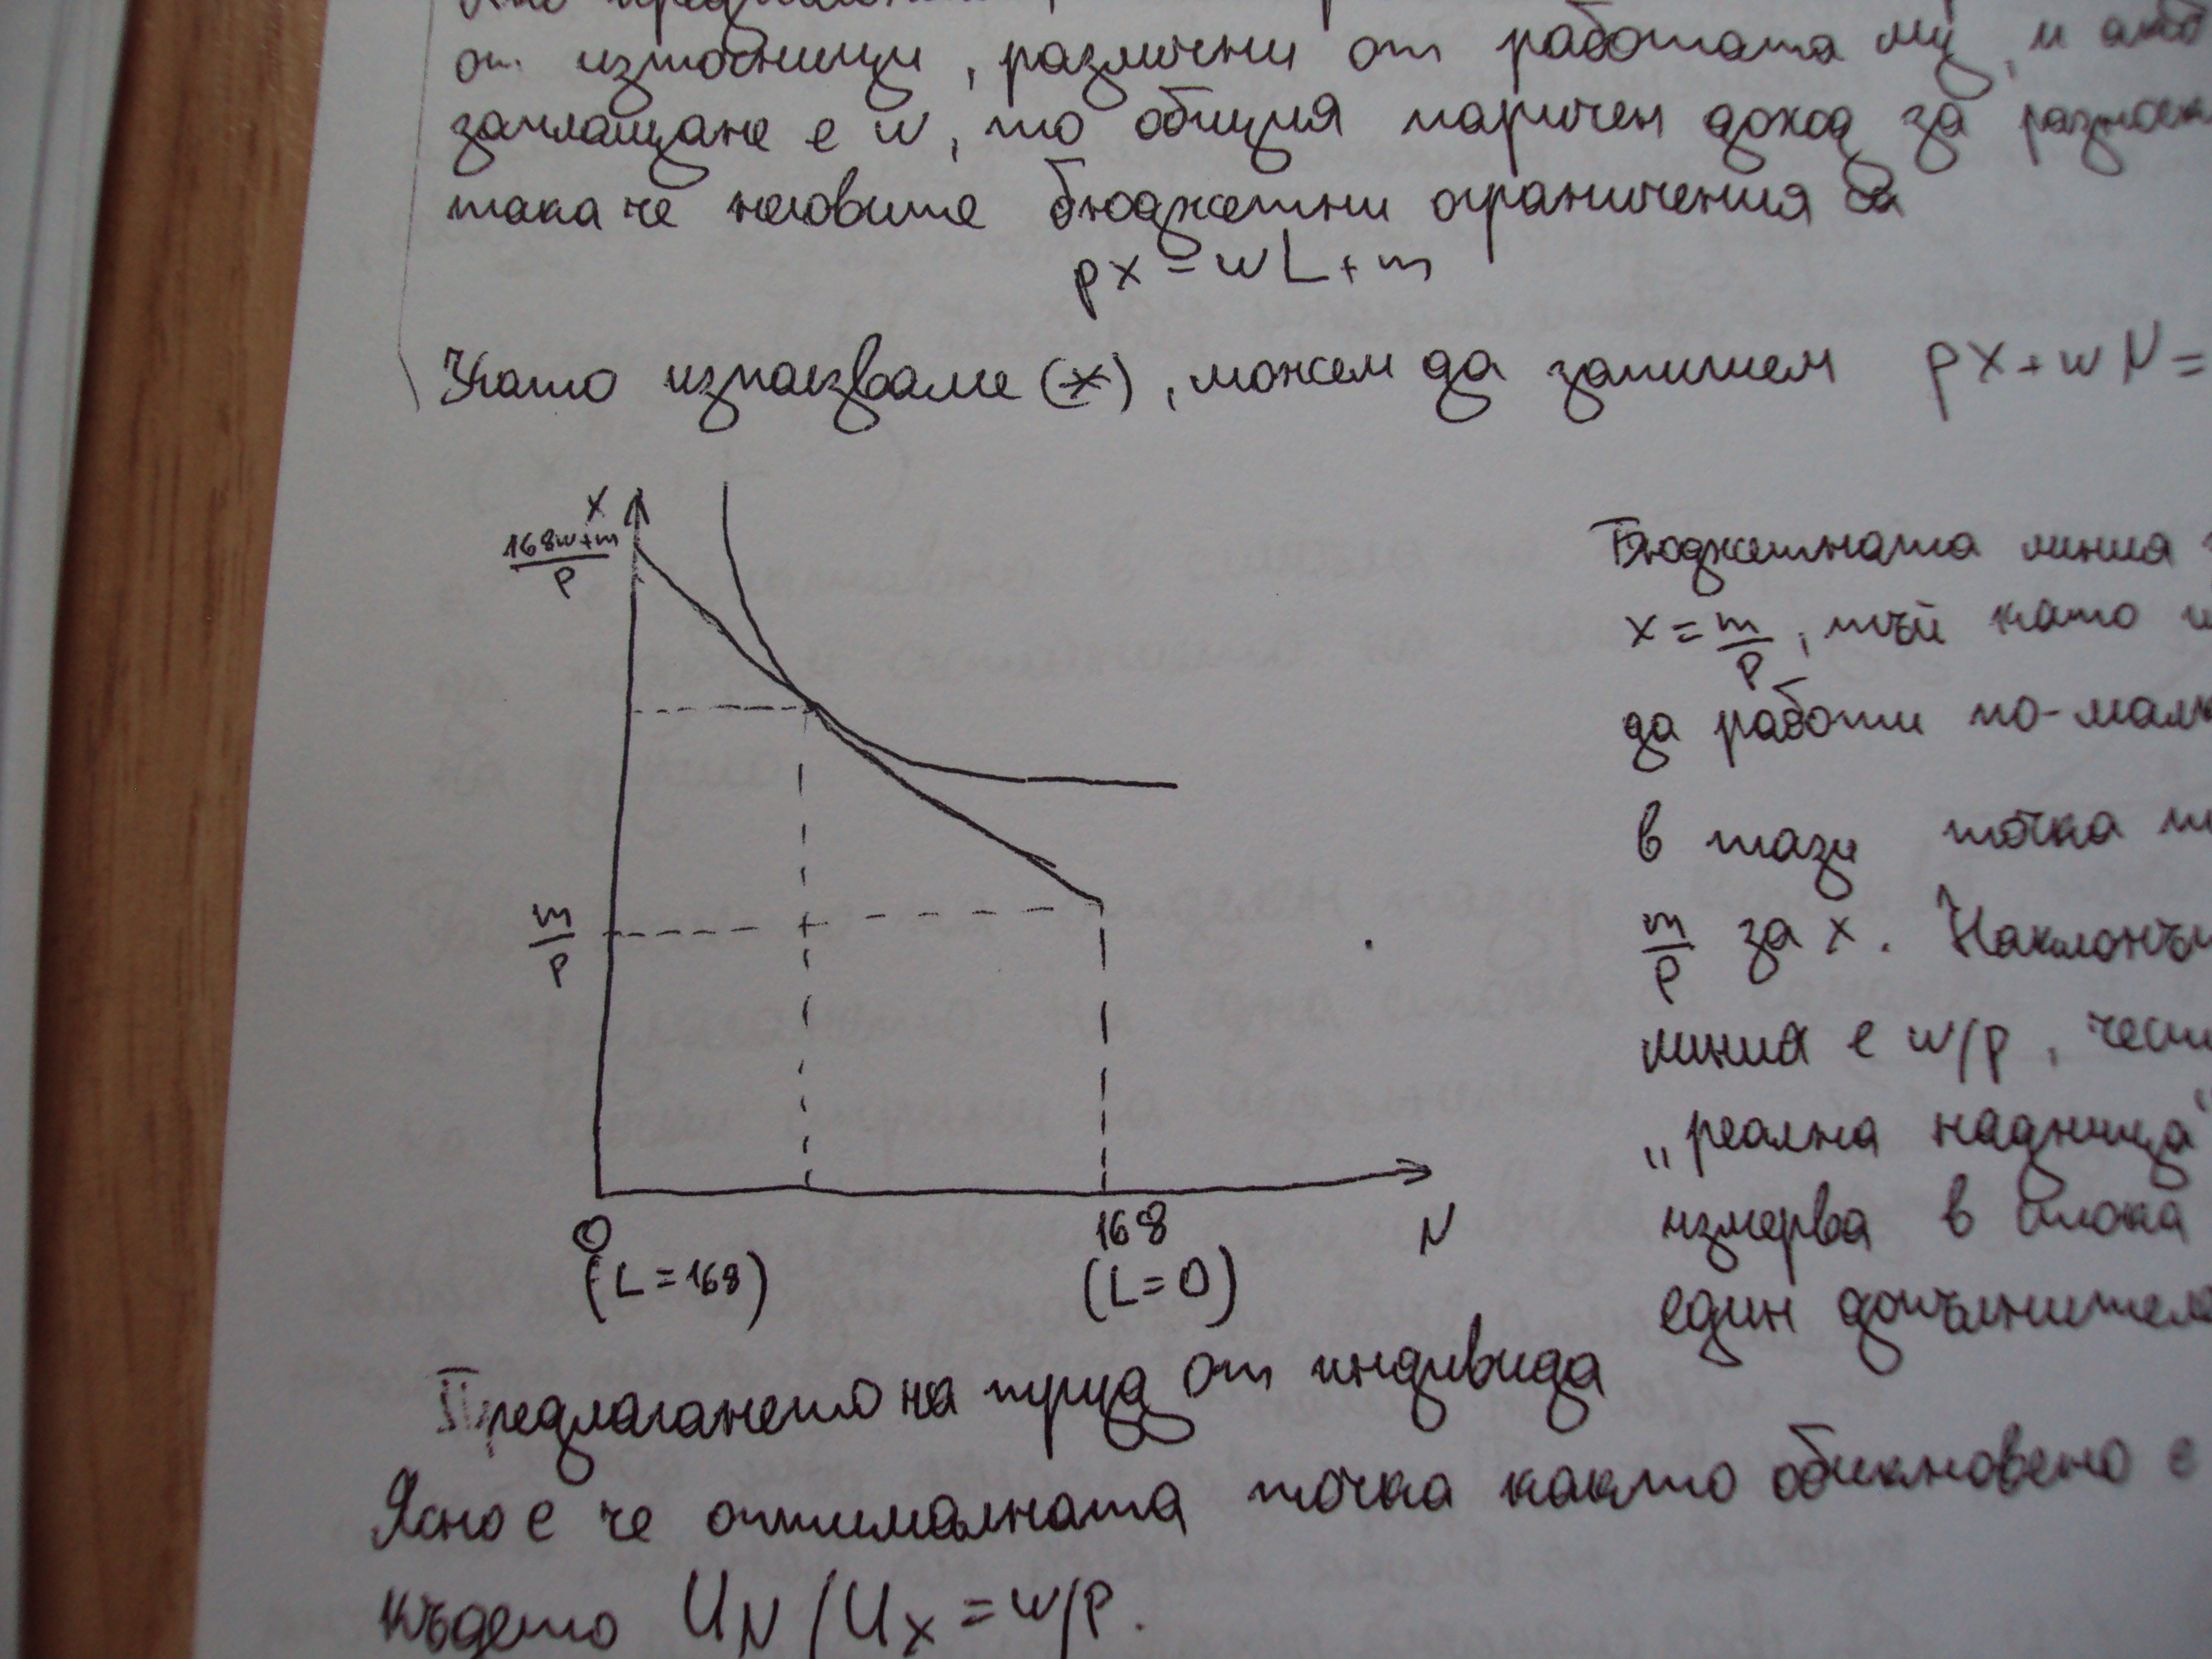 от източници, различни от работата му, и ако
заплащане е w, то общия паричен доход за
така че неговите бюджетни ограничения са
px = wL + m
Като използваме (*), можем да запишем px + wN =
x
168w+m
p
m
p
0
(L=168)
168
(L=0)
N
Бюджетната линия
x = m/p, тъй като
да работи по-малк
в тази точка
m/p за x. Наклонъ
линия е w/p, чест
„реална надница"
измерва в блока
един допълнител
Предлагането на труд от индивида
Ясно е че оптималната точка както обикновено е
където UN / Ux = w/p.